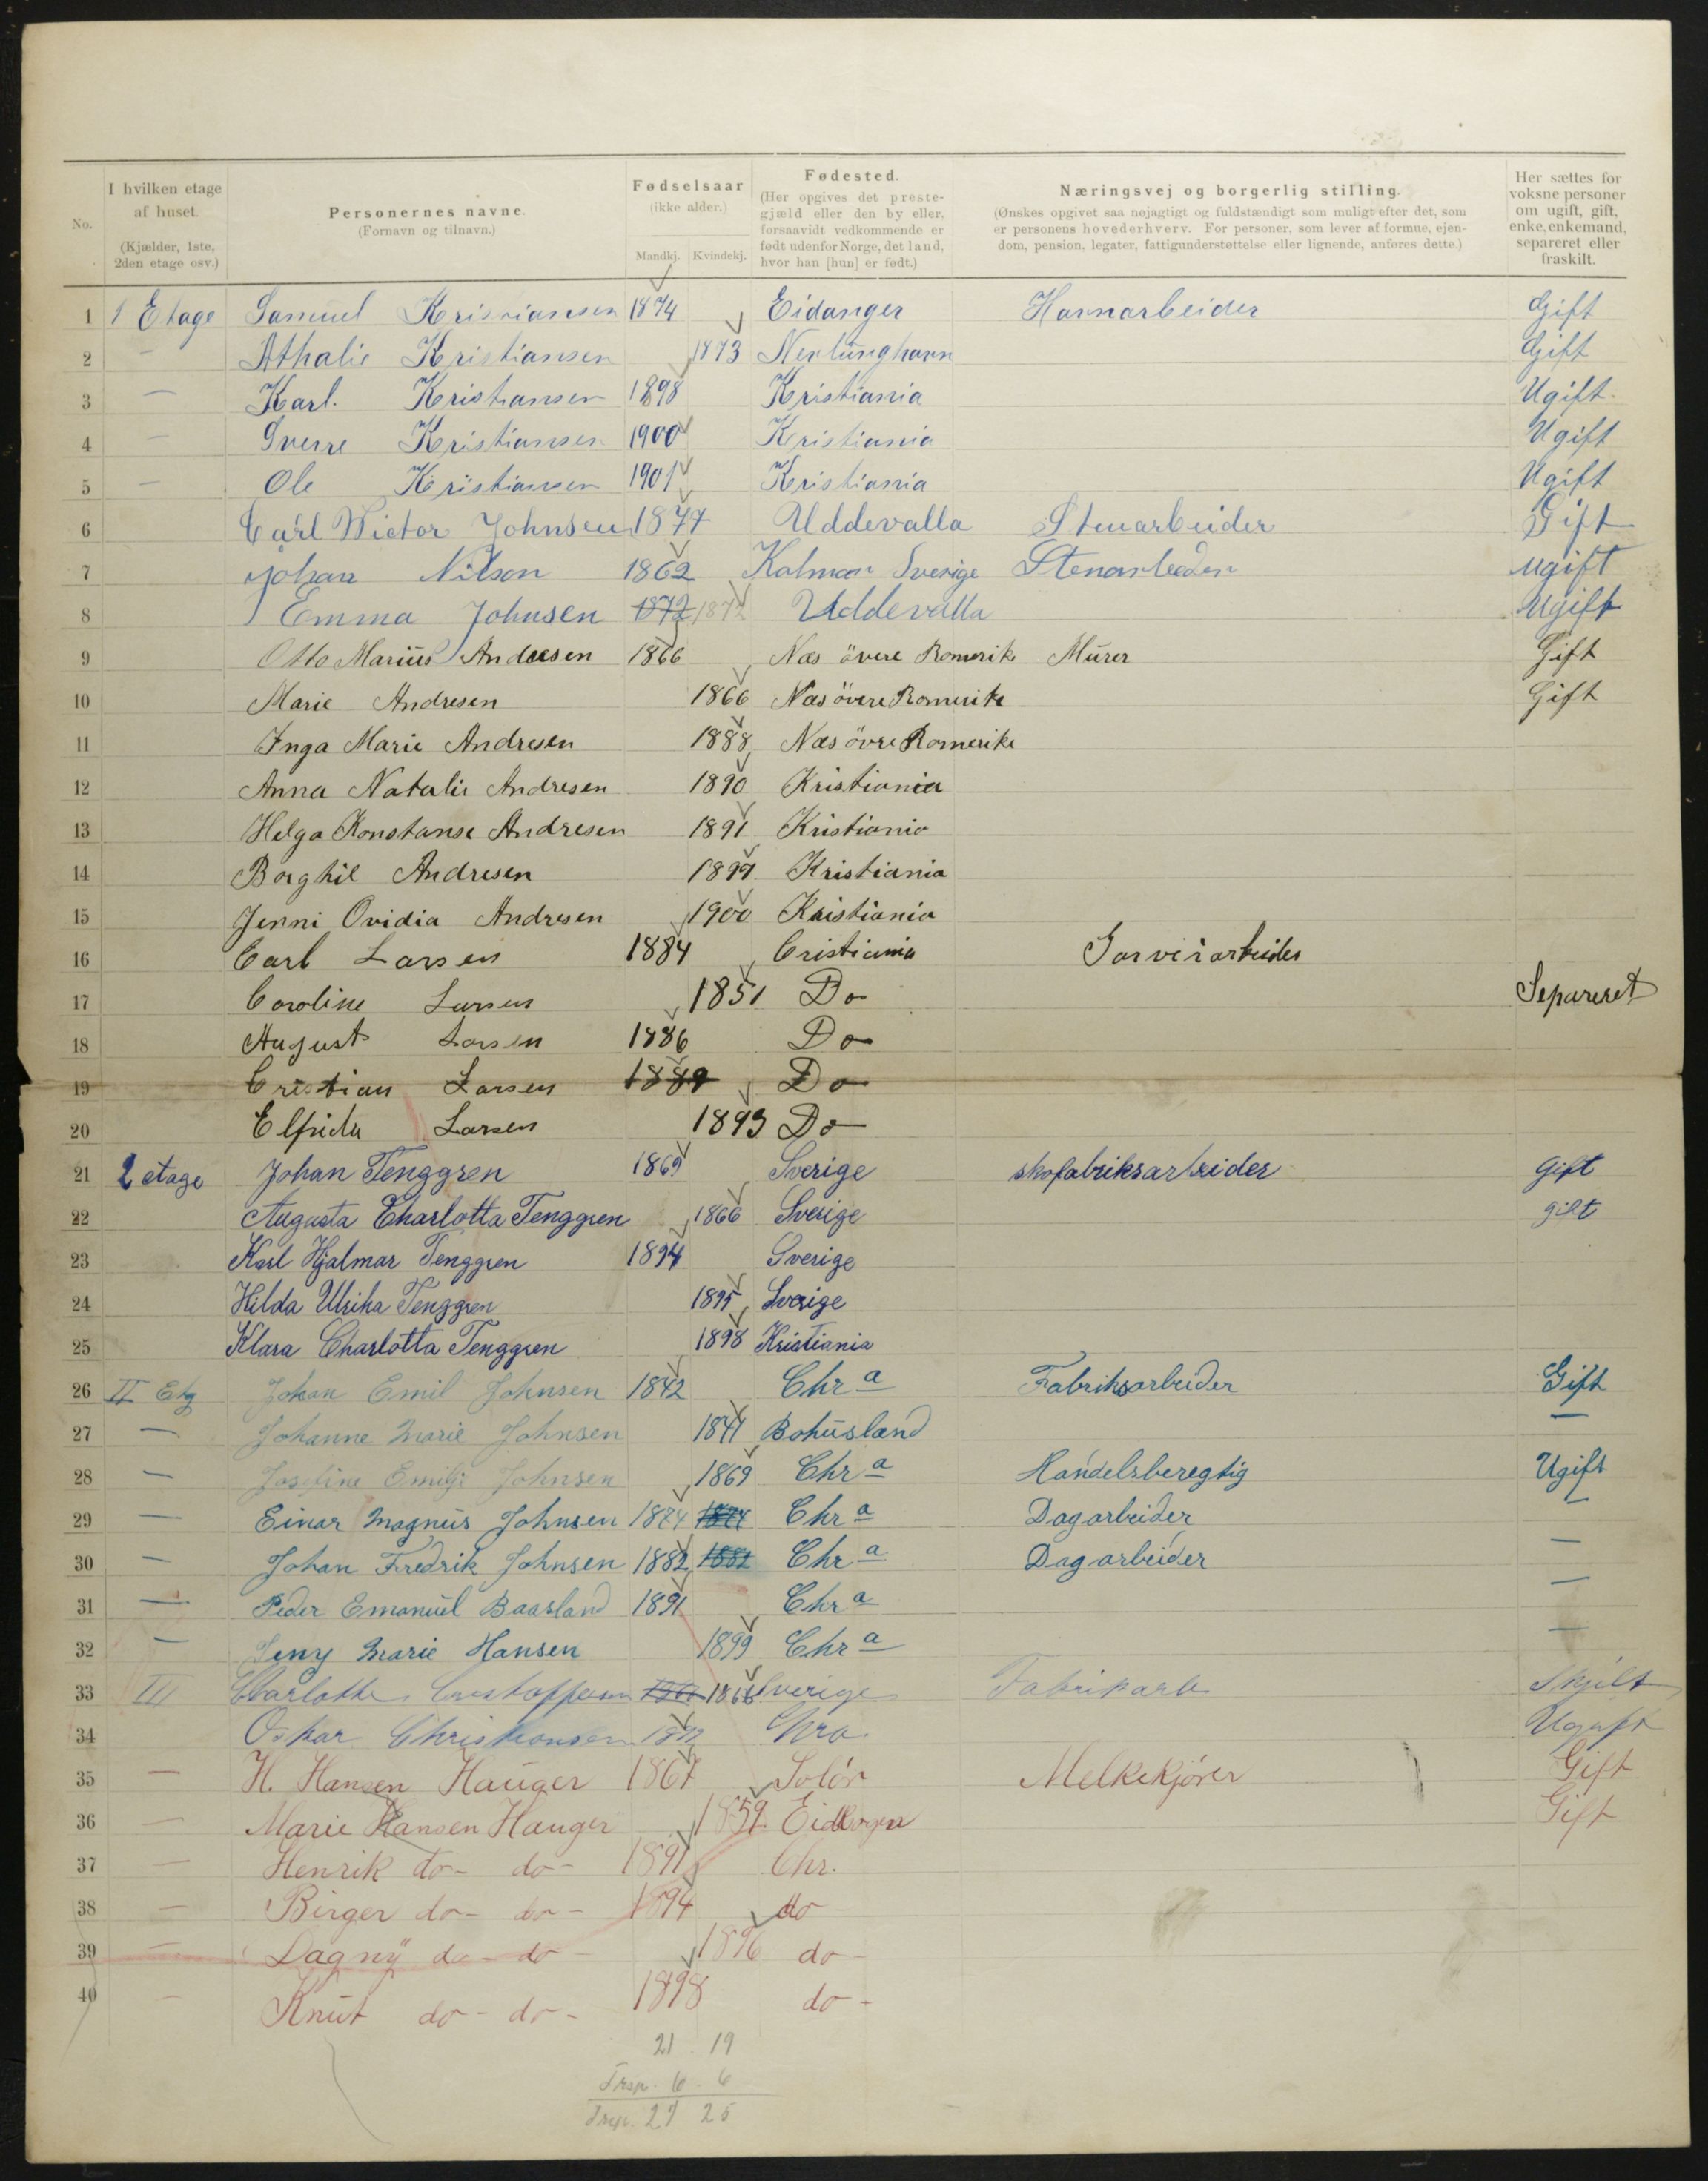 No.
I hvilken etage af huset. (Kjælder, 1ste, 2den etage osv.)
Personernes navne. (Fornavn og tilnavn.)
Fødselsaar (ikke alder.) Mandkj. Kvindekj.
Fødested. (Her opgives det prestegjæld eller den by eller, forsaavidt vedkommende er født udenfor Norge, det land, hvor han [hun] er født.)
Næringsvej og borgerlig stilling. (Ønskes opgivet saa nøjagtigt og fuldstændigt som muligt efter det, som er personens hovederhverv. For personer, som lever af formue, ejendom, pension, legater, fattigunderstøttelse eller lignende, anføres dette.)
Her sættes for voksne personer om ugift, gift, enke, enkemand, separeret eller fraskilt.
1 1 Etage Samuel Kristiansen 1874 Eidanger Havnarbeider Gift
2 — Athalie Kristiansen 1873 Gift
3 — Karl. Kristiansen 1898 Kristiania Ugift.
4 — Sverre Kristiansen 1900 Kristiania Ugift
5 — Ole Kristiansen 1901 Kristiania Ugift
6 Carl Wictor Johnsen 1877 Uddevalla Stenarbeider Gift
7 Johan Nilson 1862 Kalmar Sverige Stenarbeider ugift
8 Emma Johnsen 1872 1872 Uddevalla Ugift
9 Otto Marius Andresen 1866 Næs övere Romerike Murer Gift
10 Marie Andresen 1866 Næs övere Romerike Gift
11 Inga Marie Andresen 1888 Næs övre Romerike
12 Anna Natalie Andresen 1890 Kristiania
13 Helga Konstanse Andresen 1891 Kristiania
14 Borghil Andresen 1897 Kristiania
15 Jenni Ovidia Andresen 1900 Kristiania
16 Carl Larsen 1884 Cristiania Garveriarbeider
17 Caroline Larsen 1851 Do Separeret
18 August Larsen 1886 Do
19 Cristian Larsen 1889 Do
20 Elfrida Larsen 1893 Do
21 2 etage Johan Tenggren 1869 Sverige skofabriksarbeider gift
22 Augusta Charlotta Tenggren 1866 Sverige gift
23 Karl Hjalmar Tenggren 1894 Sverige
24 Hilda Ulrika Tenggren 1895 Sverige
25 Klara Charlotta Tenggren 1898 Kristiania
26 II Etg Johan Emil Johnsen 1842 Chra Fabriksarbeider Gift
27 — Johanne Marie Johnsen 1841 Bohusland —
28 — Josefine Emilje Johnsen 1869 Chra Handelsberegtig Ugift
29 — Einar Magnus Johnsen 1874 1874 Chra Dagarbeider —
30 — Johan Fredrik Johnsen 1882 1882 Chra Dagarbeider —
31 — Peder Emanuel Baasland 1891 Chra —
32 — Jeny Marie Hansen 1899 Chra —
33 III Charlotte 1866 Sverige Fabrikarb Skjilt
34 Oskar Christiansen Chra. Ugift
35 — H. Hansen Hauger 1867 Solör Melkekjörer Gift
36 — Marie Hansen Hauger 1859 Gift
37 — Henrik do- do- 1891 Chr.
38 — Birger do- do- 1894 do
39 — Dagny do- do- 1896 do-
40 — Knut do- do- 1898 do-
21 . 19
Trsp. 6 . 6
Trsp. 27 25